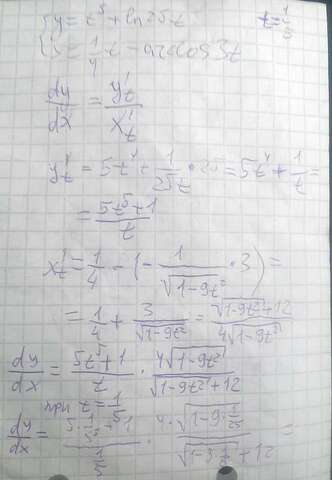 { y = t⁵ + ln 25t t = 1/5
x = 1/4 t - arccos 3t
dy/dx = y't / x't
y't = 5t⁴ + 1/25t · 25 = 5t⁴ + 1/t =
= 5t⁵+1 / t
x't = 1/4 - (- 1/√1-9t² · 3) =
= 1/4 + 3/√1-9t² = √1-9t² + 12 / 4√1-9t²
dy/dx = 5t⁵+1 / t · 4√1-9t² / √1-9t² + 12
при t = 1/5
dy/dx = 5·1/5⁵ + 1 / 1/5 · 4·√1-9·1/25 / √1-3·1/5 + 12 =